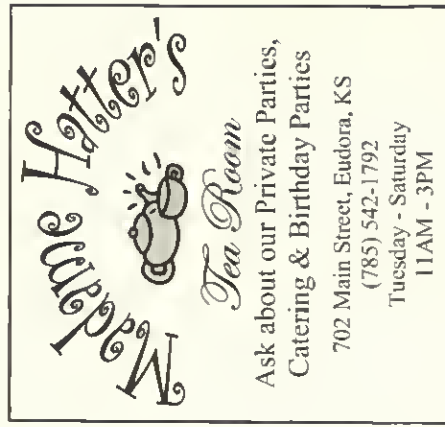 Madame Hatter's
Tea Room
Ask about our Private Parties,
Catering & Birthday Parties
702 Main Street, Eudora, KS
(785) 542-1792
Tuesday - Saturday
11AM - 3PM